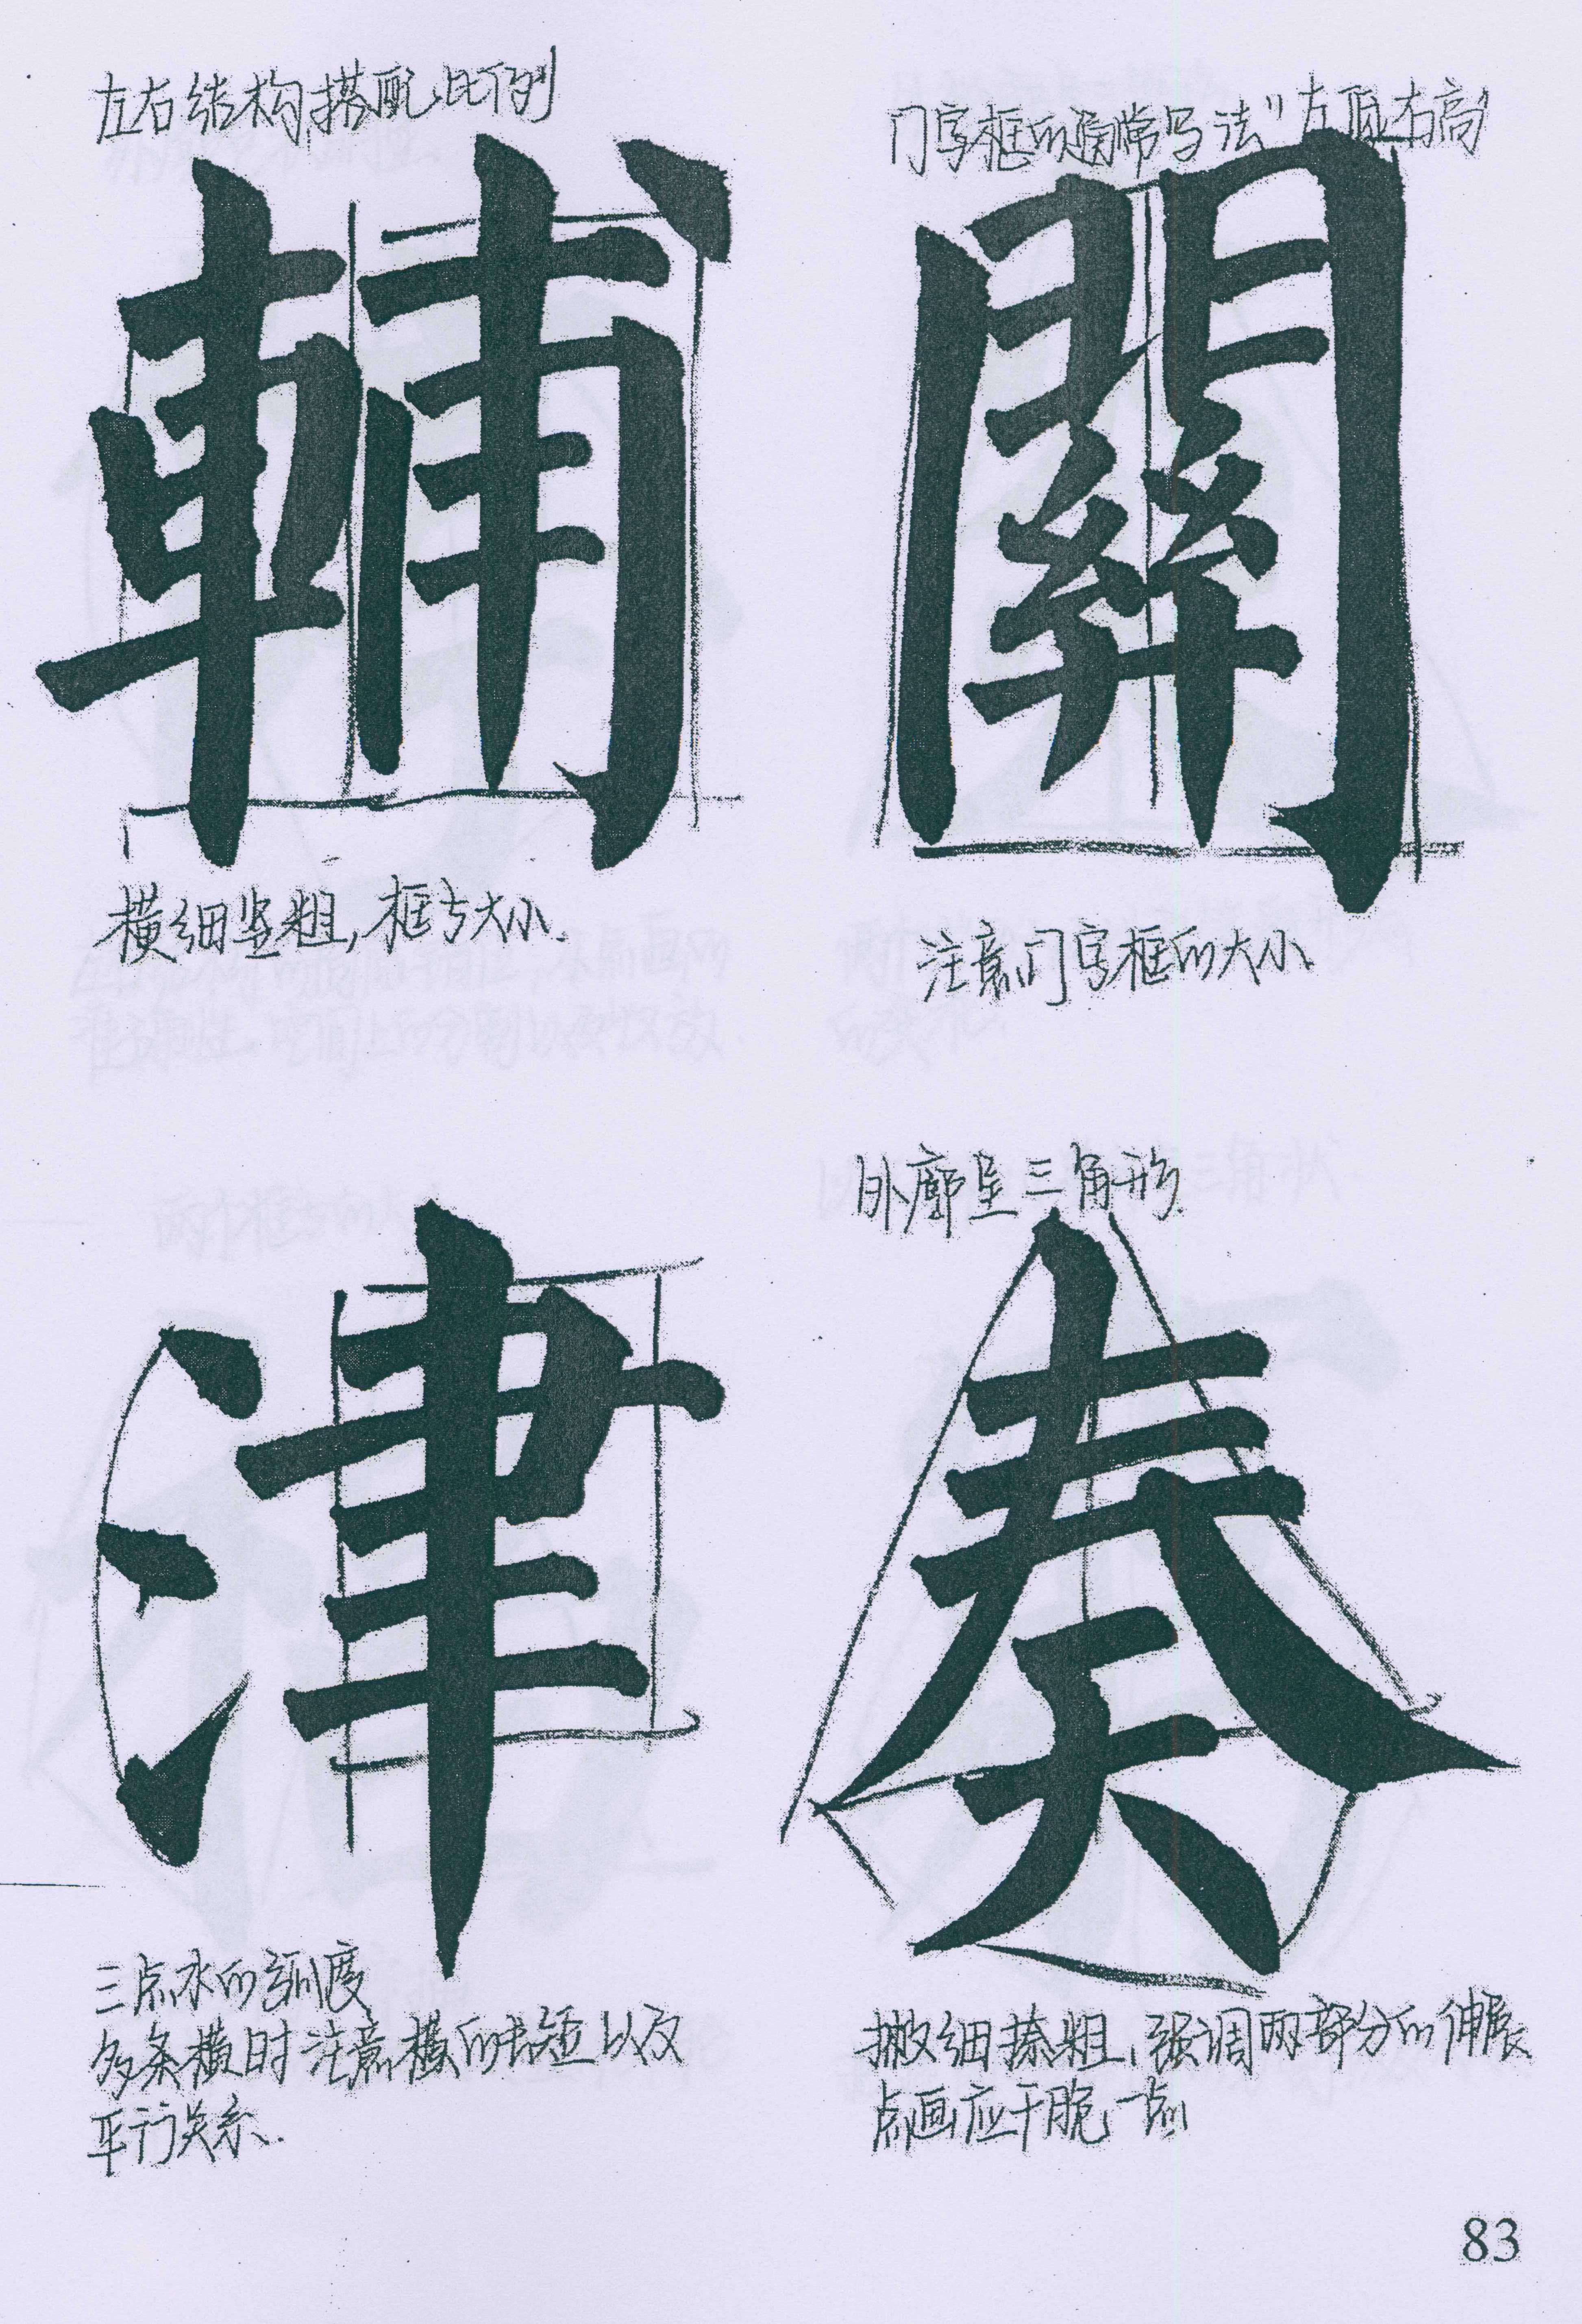 左右结构,搭配比例
輔
横细竖粗,框与大小.
门字框的通常写法"左低右高
關
注意门字框的大小
津
三点水的弧度
多条横时注意横的长短以及
平行关系.
外廓呈三角形.
奏
撇细捺粗,强调两部分的伸展
点画应干脆一点
83